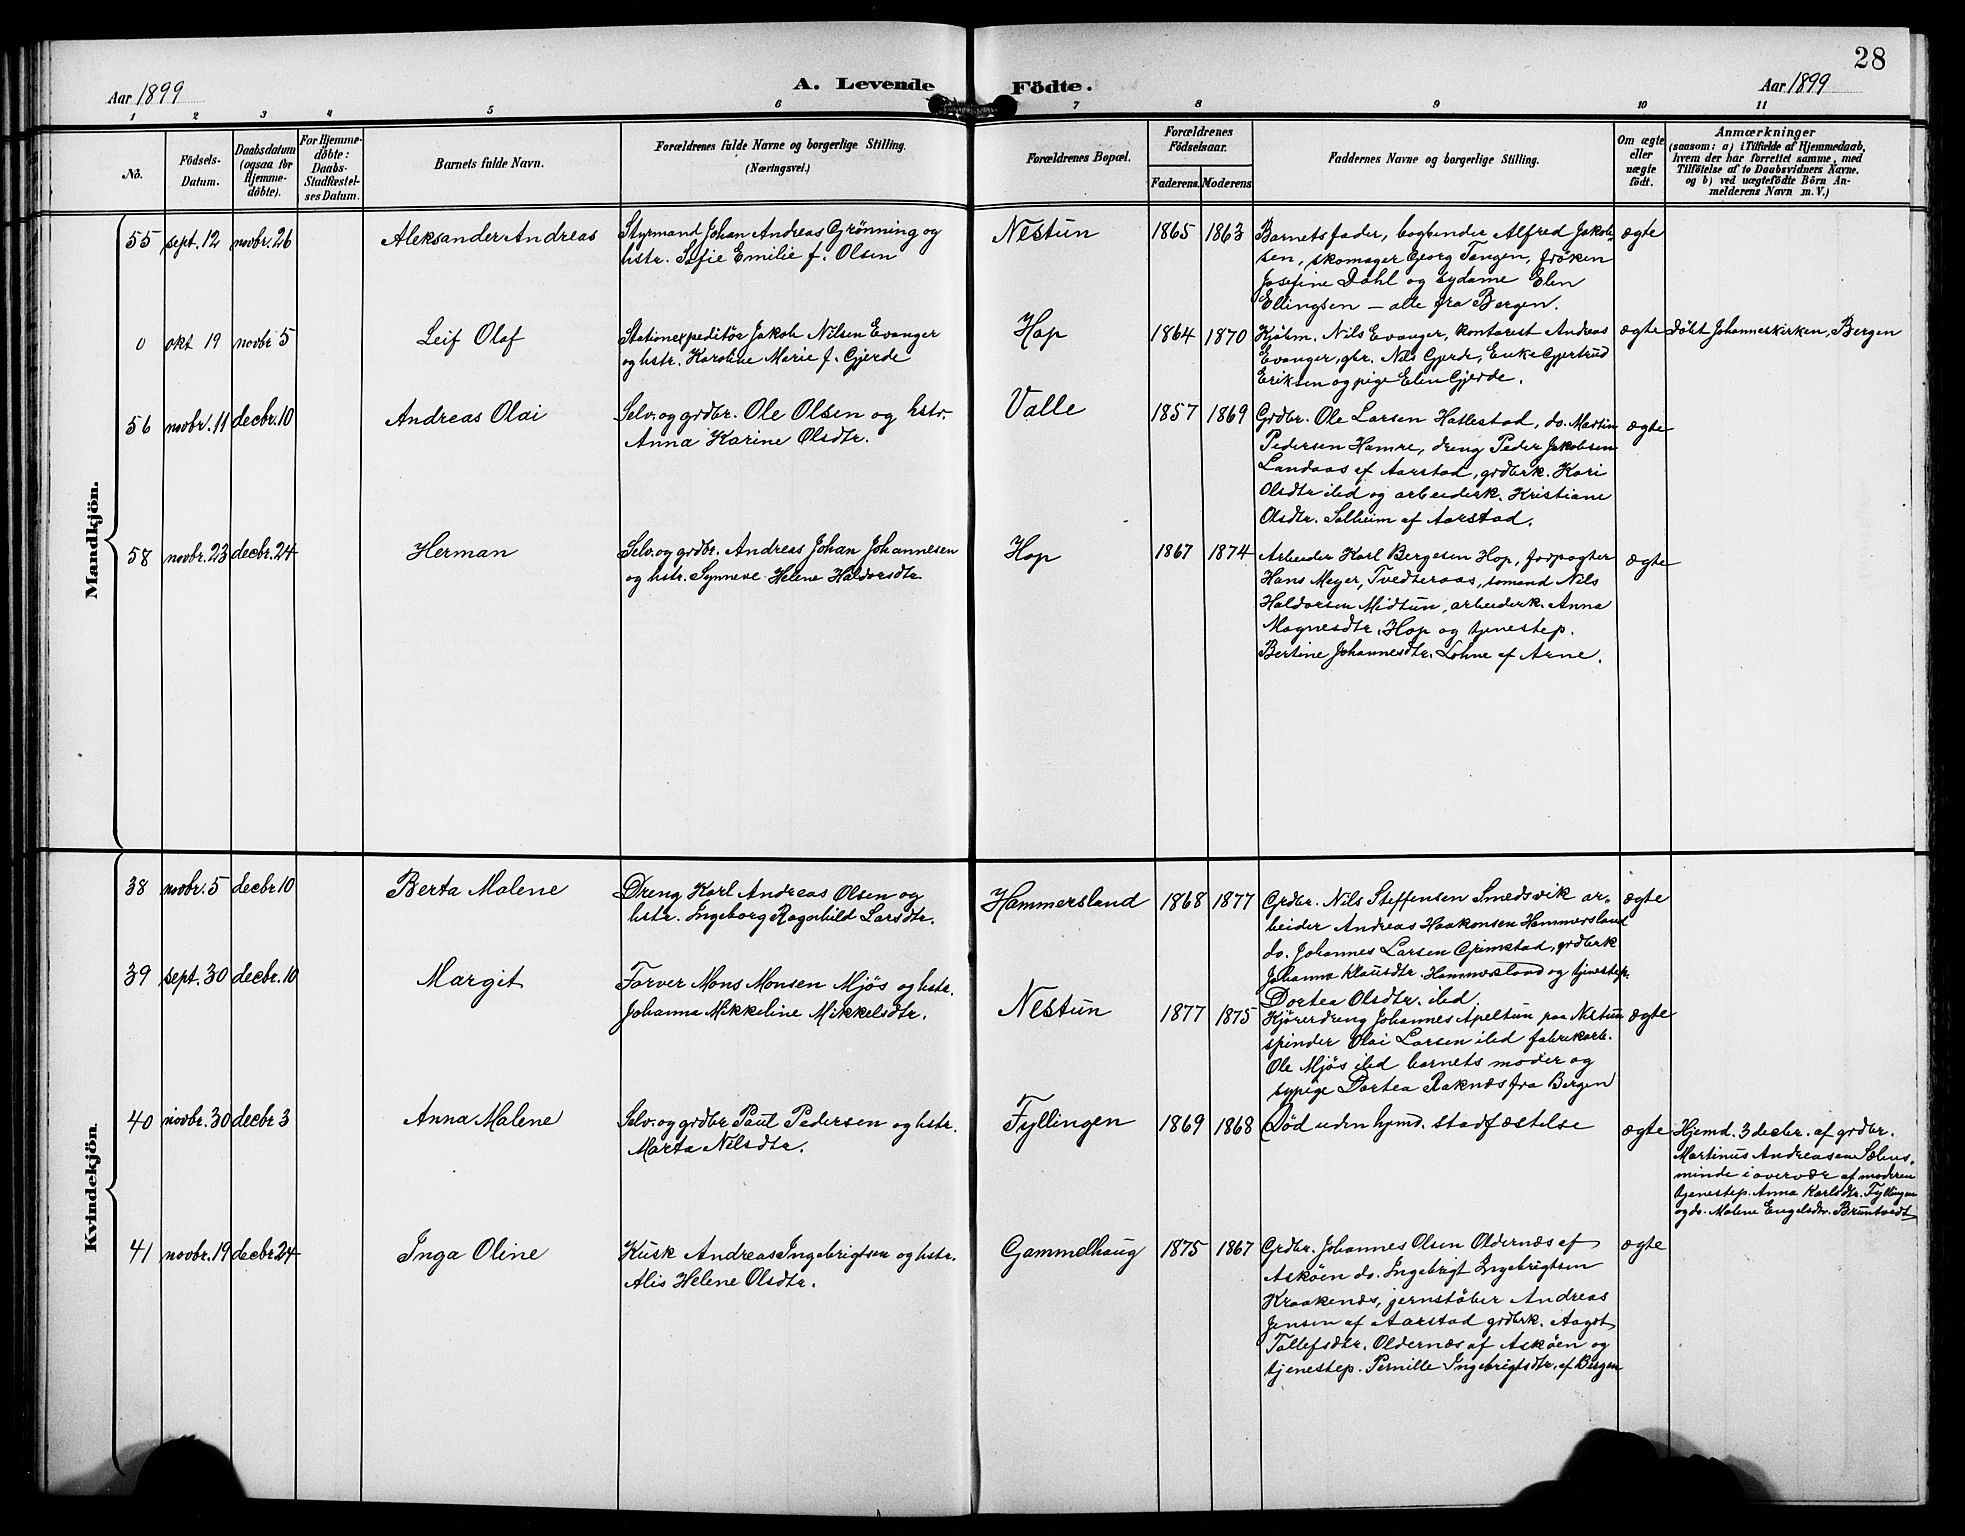 28
Aar 1899
A. Levende Födte.
Aar 1899
1 2 3 4 5 6 7 8 9 10 11
No.
Födsels-
Datum.
Daabsdatum
(ogsaa for
Hjemme-
döbte).
For Hjemme-
döbte:
Daabs-
Stadfæstel-
ses Datum.
Barnets fulde Navn.
Forældrenes fulde Navne og borgerlige Stilling.
(Næringsvei.)
Forældrenes Bopæl.
Forældrenes
Födselsaar.
Faderens. Moderens
Faddernes Navne og borgerlige Stilling.
Om ægte
eller
uægte
födt.
Anmærkninger
(saasom: a) i Tilfælde af Hjemmedaab,
hvem der har forrettet samme, med
Tilföielse af to Daabsvidners Navne.
og b) ved uægtefödte Börn An-
melderens Navn m. V.)
Mandkjön.
55 sept. 12 novbr. 26
Aleksander Andreas
Styrmand Johan Andreas Grønning og
hstr. Sofie Emilie f. Olsen
Nestun
1865 1863
Barnets fader, bogbinder Alfred Jakob-
sen, skomager Georg Tangen, frøken
Josefine Dahl og sydame Elen
Ellingsen – alle fra Bergen.
ægte
0 okt 19 novbr 5
Leif Olaf
Stationexpeditör Jakob Nilsen Evanger
og hstr. Karoline Marie f. Gjerde
Hop
1864 1870
Kjøbm. Nils Evanger, kontorist Andreas
Evanger, gbr. Nils Gjerde, Enke Gjertrud
Eriksen og pige Elen Gjerde.
ægte
Döbt Johanneskirken, Bergen
56 novbr. 11 decbr. 10
Andreas Olai
Selv. og grdbr. Ole Olsen og hstr.
Anna Karine Olsdtr.
Valle
1857 1869
Grdbr. Ole Larsen Hatlestad, do. Martin
Pedersen Hamre, dreng Peder Jakobsen
Landaas af Aarstad, grdbrk. Kari
Olsdtr ibd og arbeiderk. Kristiane
Olsdtr. Solheim af Aarstad.
ægte
58 novbr. 23 decbr. 24
Herman
Selv. og grdbr. Andreas Johan Johannesen
og hstr. Synneve Helene Haldorsdtr
Hop
1867 1874
Arbeider Karl Bergesen Hop, forpagter
Hans Meyer, Tvedteraas, sømand Nils
Haldorsen Midtun, arbeiderk. Anna
Magnesdtr. Hop og tjenestep.
Bertine Johannesdtr. Lohne af Arne.
ægte
Kvindekjön.
38 novbr. 5 decbr 10
Berta Malene
Dreng Karl Andreas Olsen og
hstr. Ingeborg Ragnhild Larsdtr.
Hammersland
1868 1877
Grdbr. Nils Steffensen Smedsvik ar-
beider Andreas Haakonsen Hammersland
do. Johannes Larsen Grimstad, grdbrk
Johanna Klausdtr. Hammersland og tjenestep.
Dortea Olsdtr. ibd.
ægte
39 sept. 30 decbr. 10
Margit
Farver Mons Monsen Mjøs og hstr.
Johanna Mikkeline Mikkelsdtr.
Nestun
1877 1875
Kjørerdreng Johannes Apeltun paa Nistun
spinder Olai Larsen ibd fabrikarb.
Ole Mjøs ibd barnets moder og
sypige Dortea Raknæs fra Bergen
ægte
40 novbr. 30 decbr 3
Anna Malene
Selv. og grdbr Paul Pedersen og hstr.
Marta Nilsdtr.
Fyllingen
1869 1868
Död uden hjmd. stadfæstelse
ægte
Hjemd. 3 decbr. af grdbr.
Martinus Andreasen Sælens-
minde i overvær af moderen
tjenestep. Anna Karlsdtr. Fyllingen
og do. Malene Engelsdtr. Bruntvedt
41 novbr. 19 decbr. 24
Inga Oline
Kusk Andreas Ingebrigtsen og hstr.
Alis Helene Olsdtr.
Gammelhaug
1875 1867
Grdbr. Johannes Olsen Oldernæs af
Askøen do. Ingebrigt Ingebrigtsen
Kraakenæs, jernstöber Andreas
Jensen af Aarstad grdbrk. Aagot
Tollefsdtr. Oldernæs af Askøen og
tjenestep. Pernille Ingebrigtsdtr. af Bergen
ægte